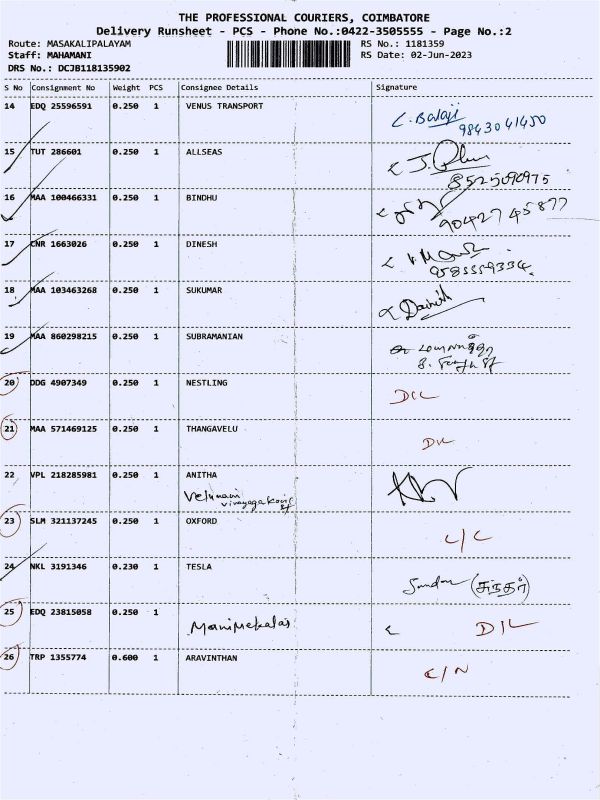 THE PROFESSIONAL COURIERS, COIMBATORE
Delivery Runsheet - PCS - Phone No.:0422-3505555 - Page No.:2
Route: MASAKALIPALAYAM RS No.: 1181359
Staff: MAHAMANI RS Date: 02-Jun-2023
DRS No.: DCJB118135902
S No Consignment No Weight PCS Consignee Details Signature
14 EDQ 25596591 0.250 1 VENUS TRANSPORT C. Balaji
9843041450
15 TUT 286601 0.250 1 ALLSEAS
8525090975
16 MAA 100466331 0.250 1 BINDHU
9042745877
17 CNR 1663026 0.250 1 DINESH
9585559334
18 MAA 103463268 0.250 1 SUKUMAR
19 MAA 860298215 0.250 1 SUBRAMANIAN
20 DDG 4907349 0.250 1 NESTLING D/L
21 MAA 571469125 0.250 1 THANGAVELU D/L
22 VPL 218285981 0.250 1 ANITHA
Velumani
23 SLM 321137245 0.250 1 OXFORD L/C
24 NKL 3191346 0.230 1 TESLA Sundar (சுந்தர்)
25 EDQ 23815058 0.250 1 Manimekalai D/L
26 TRP 1355774 0.600 1 ARAVINTHAN C/N